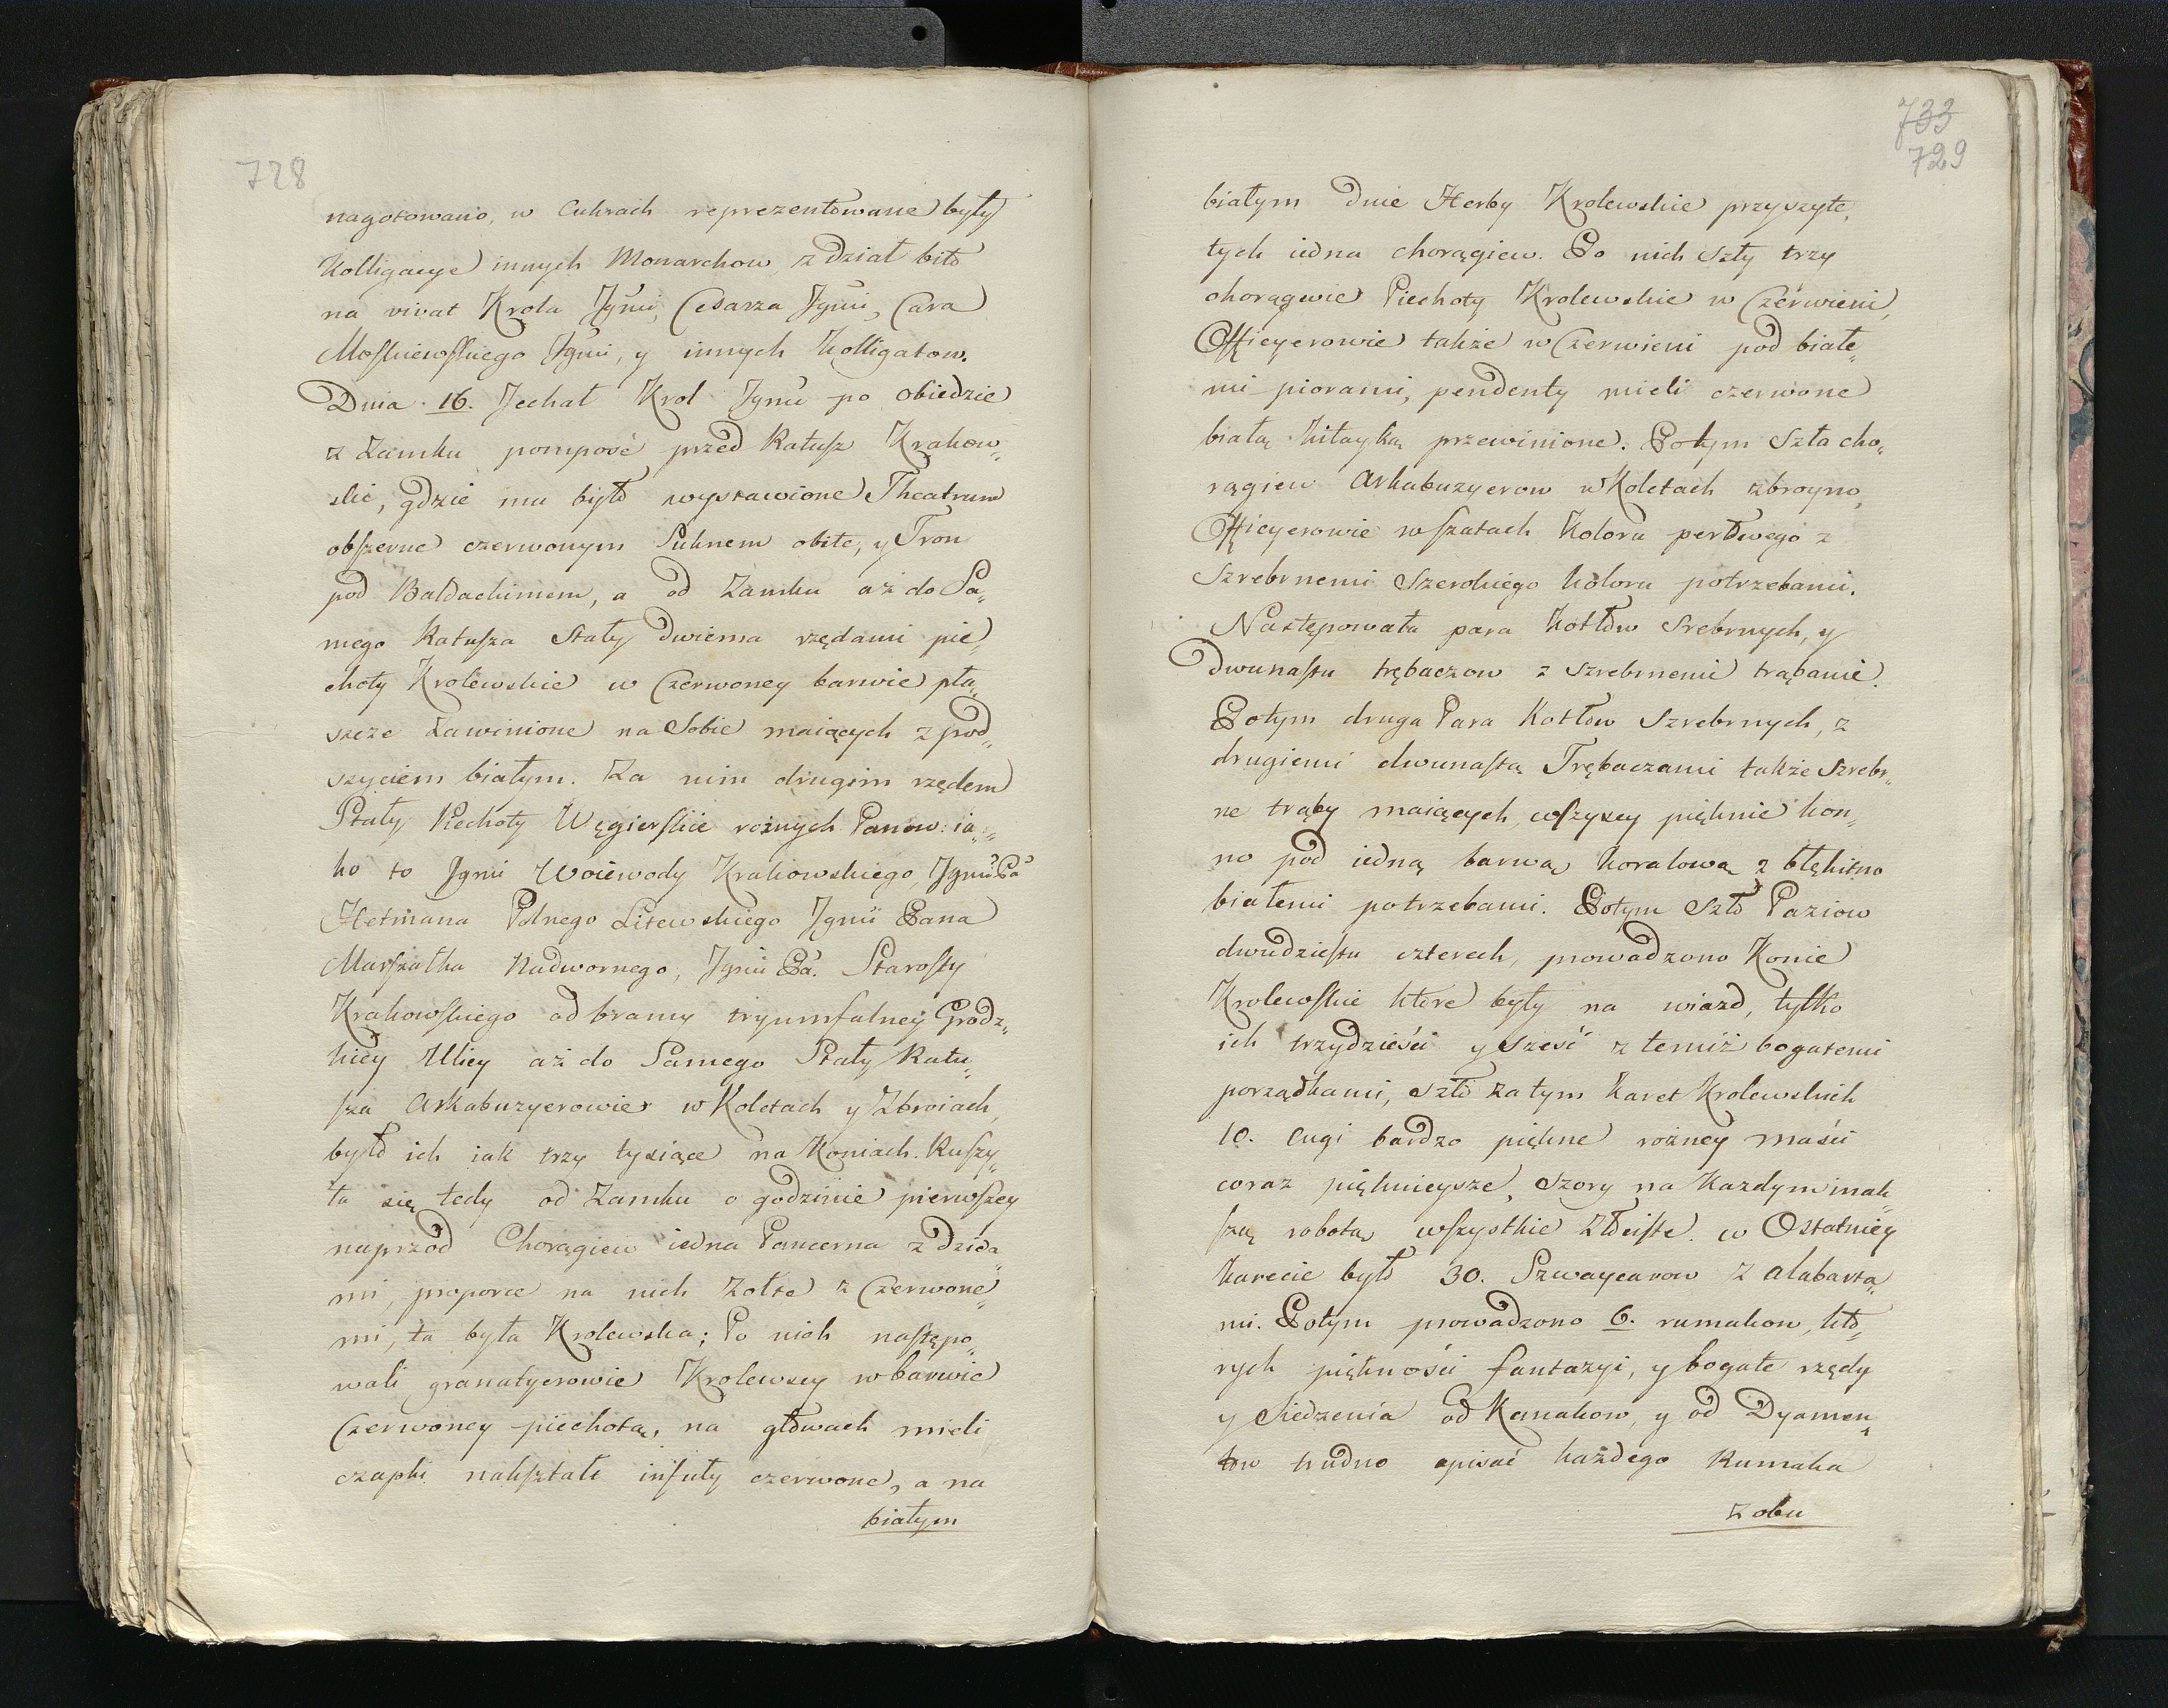 728
nagotowano, w Cukrach reprezentowane były
Kolligacye innych Monarchow, z dział bito
na vivat Krola Jgmci, Cesarza Jgmci, Cara
Moskiewskiego Jgmci, y innych Kolligatow.
Dnia 16. Jechał Krol Jgmć po obiedzie
z Zamku pompose przed Ratusz Krakow„
ski, gdzie mu było wystawione Theatrum
obszerne czerwonym Suknem obite, y Tron
pod Baldachimem, a od Zamku aż do Sa„
mego Ratusza Stały dwiema rzędami pie„
choty Krolewskie w Czerwoney barwie pła„
szcze Zawinione na Sobie maiących z pod„
szyciem białym. Za nim drugim rzędem
Stały Piechoty Węgierskie rożnych Panow: ia„
ko to Jgmci Woiewody Krakowskiego, Jgmci Pa
Hetmana Polnego Litewskiego Jgmci Pana
Marszałka Nadwornego, Jgmci Pa. Starosty
Krakowskiego od bramy tryumfalney Grodz„
kiey Ulicy aż do Samego Stały Ratu„
sza Arkabuzyerowie w Koletach y Zbroiach,
było ich iak trzy tysiące na Koniach. Ruszy„
ła się tedy od Zamku o godzinie pierwszey
naprzod Chorągiew iedna Pancerna z Dzida„
mi, proporce na nich Zołte z Czerwone„
mi, ta była Krolewska; Po nich następo„
wali granatyerowie Krolewscy w barwie
Czerwoney piechotą, na głowach mieli
czapki nakształt infuły czerwone, a na
białym
733
729
białym Dnie Herby Krolewskie przyszyte,
tych iedna chorągiew. Po nich Szły trzy
chorągwie Piechoty Krolewskie w Czerwieni,
Officyerowie także w Czerwieni pod białe„
mi piorami, pendenty mieli czerwone
białą Kitayką przewinione. Potym Szła cho„
rągiew Arkabuzyerow w Koletach zbroyno,
Officyerowie w szatach Koloru perłowego z
Szrebrnemi Szerokiego koloru potrzebami.
Następowała para Kotłow Srebrnych, y
Dwunastu trębaczow z szrebrnemi trąbami.
Potym druga Para Kotłow Szrebrnych, z
drugiemi dwunastą Trębaczami także Szrebr„
ne trąby maiących, wszyscy pięknie kon„
no pod iedną barwą Koralową z błękitno
białemi potrzebami. Potym Szło Paziow
dwudziestu czterech, prowadzono Konie
Krolewskie ktore były na wiazd, tylko
ich trzydzieści y sześć z temiż bogatemi
porządkami, szło zatym Karet Krolewskich
10. cugi bardzo piękne rożney maści
coraz pięknieysze, szory na Każdym inak„
szą robotą wszystkie Złociste. w Ostatniey
Karecie było 30. Szwaycarow z alabarta„
mi. Potym prowadzono 6. rumakow, kto„
rych piękności fantazyi, y bogate rzędy
y Siedzenia od Kanakow, y od Dyamen„
tow trudno opisać każdego Rumaka
z obu